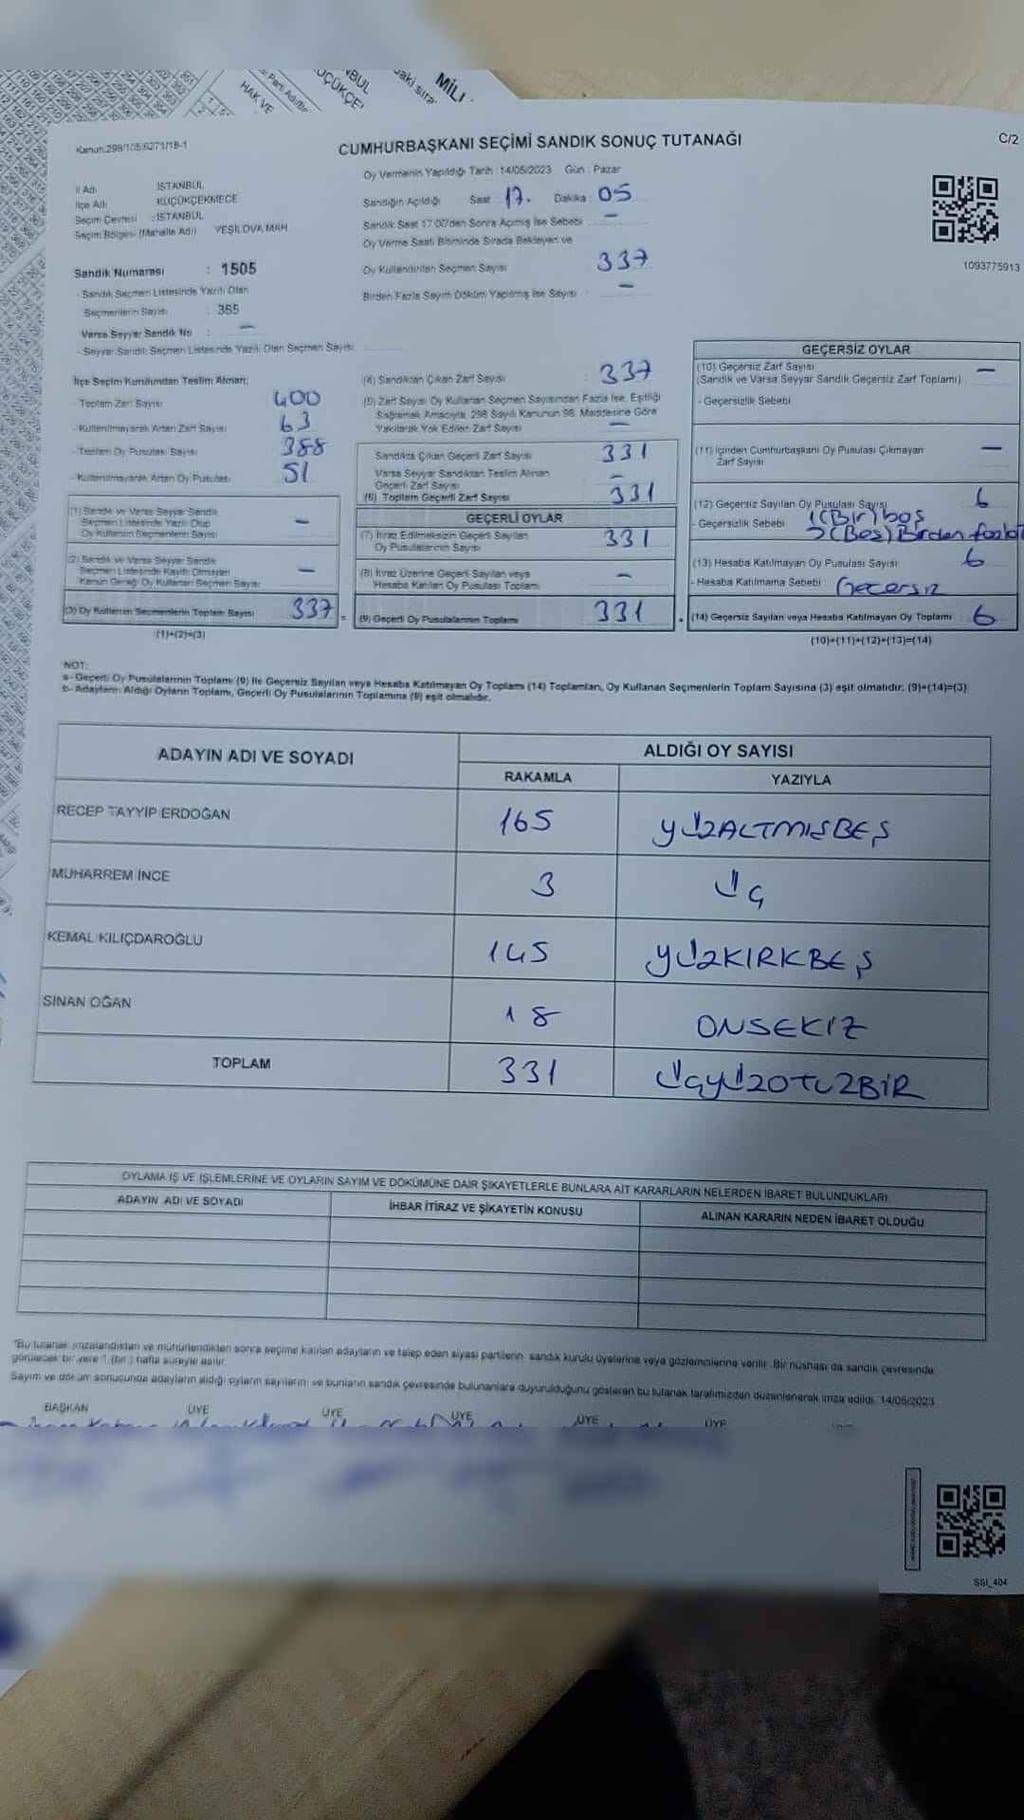 MİLL
HAK VE
Kanun:298/105:6271/18-1
CUMHURBAŞKANI SEÇİMİ SANDIK SONUÇ TUTANAĞI
C/2
Oy Vermenin Yapıldığı Tarih : 14/05/2023 Gün : Pazar
İl Adı : İSTANBUL
İlçe Adı : KÜÇÜKÇEKMECE
Seçim Çevresi : İSTANBUL
Seçim Bölgesi (Mahalle Adı) : YEŞİLOVA MAH.
Sandığın Açıldığı Saat 17. Dakika 05
Sandık Saat 17:00'den Sonra Açılmış İse Sebebi : —
Oy Verme Saati Bitiminde Sırada Bekleyen ve
Oy Kullandırılan Seçmen Sayısı 337
Birden Fazla Sayım Döküm Yapılmış İse Sayısı : —
1093775913
Sandık Numarası : 1505
- Sandık Seçmen Listesinde Yazılı Olan
Seçmenlerin Sayısı : 365
Varsa Seyyar Sandık No : —
- Seyyar Sandık Seçmen Listesinde Yazılı Olan Seçmen Sayısı:
İlçe Seçim Kurulundan Teslim Alınan;
- Toplam Zarf Sayısı 400
- Kullanılmayarak Artan Zarf Sayısı 63
- Toplam Oy Pusulası Sayısı 388
- Kullanılmayarak Artan Oy Pusulası 51
(1) Sandık ve Varsa Seyyar Sandık
Seçmen Listesinde Yazılı Olup
Oy Kullanan Seçmenlerin Sayısı —
(2) Sandık ve Varsa Seyyar Sandık
Seçmen Listesinde Kaydı Olmayan
Kanun Gereği Oy Kullanan Seçmen Sayısı —
(3) Oy Kullanan Seçmenlerin Toplam Sayısı 337
(1)+(2)=(3)
(4) Sandıktan Çıkan Zarf Sayısı 337
(5) Zarf Sayısı Oy Kullanan Seçmen Sayısından Fazla İse, Eşitliği
Sağlamak Amacıyla 298 Sayılı Kanunun 98. Maddesine Göre
Yakılarak Yok Edilen Zarf Sayısı —
Sandıkta Çıkan Geçerli Zarf Sayısı 331
Varsa Seyyar Sandıktan Teslim Alınan
Geçerli Zarf Sayısı —
(6) Toplam Geçerli Zarf Sayısı 331
GEÇERLİ OYLAR
(7) İtiraz Edilmeksizin Geçerli Sayılan
Oy Pusulalarının Sayısı 331
(8) İtiraz Üzerine Geçerli Sayılan veya
Hesaba Katılan Oy Pusulası Toplamı —
(9) Geçerli Oy Pusulalarının Toplamı 331
GEÇERSİZ OYLAR
(10) Geçersiz Zarf Sayısı —
(Sandık ve Varsa Seyyar Sandık Geçersiz Zarf Toplamı)
- Geçersizlik Sebebi
(11) İçinden Cumhurbaşkanı Oy Pusulası Çıkmayan
Zarf Sayısı —
(12) Geçersiz Sayılan Oy Pusulası Sayısı 6
- Geçersizlik Sebebi 1 (Bir) boş
5 (Beş) Birden fazla
(13) Hesaba Katılmayan Oy Pusulası Sayısı 6
- Hesaba Katılmama Sebebi Geçersiz
(14) Geçersiz Sayılan veya Hesaba Katılmayan Oy Toplamı 6
(10)+(11)+(12)+(13)=(14)
NOT:
a- Geçerli Oy Pusulalarının Toplamı (9) ile Geçersiz Sayılan veya Hesaba Katılmayan Oy Toplamı (14) Toplamları, Oy Kullanan Seçmenlerin Toplam Sayısına (3) eşit olmalıdır. (9)+(14)=(3)
b- Adayların Aldığı Oyların Toplamı, Geçerli Oy Pusulalarının Toplamına (9) eşit olmalıdır.
ADAYIN ADI VE SOYADI
ALDIĞI OY SAYISI
RAKAMLA YAZIYLA
RECEP TAYYİP ERDOĞAN 165 YÜZALTMIŞBEŞ
MUHARREM İNCE 3 ÜÇ
KEMAL KILIÇDAROĞLU 145 YÜZKIRKBEŞ
SİNAN OĞAN 18 ONSEKİZ
TOPLAM 331 ÜÇYÜZOTUZBİR
OYLAMA İŞ VE İŞLEMLERİNE VE OYLARIN SAYIM VE DÖKÜMÜNE DAİR ŞİKAYETLERLE BUNLARA AİT KARARLARIN NELERDEN İBARET BULUNDUKLARI
ADAYIN ADI VE SOYADI
İHBAR İTİRAZ VE ŞİKAYETİN KONUSU
ALINAN KARARIN NEDEN İBARET OLDUĞU
*Bu tutanak imzalandıktan ve mühürlendikten sonra seçime katılan adayların ve talep eden siyasi partilerin sandık kurulu üyelerine veya gözlemcilerine verilir. Bir nüshası da sandık çevresinde
görülecek bir yere 1 (bir) hafta süreyle asılır.
Sayım ve döküm sonucunda adayların aldığı oyların sayılarını ve bunların sandık çevresinde bulunanlara duyurulduğunu gösteren bu tutanak tarafımızdan düzenlenerek imza edildi. 14/05/2023
BAŞKAN ÜYE ÜYE ÜYE ÜYE ÜYE
SGI_404